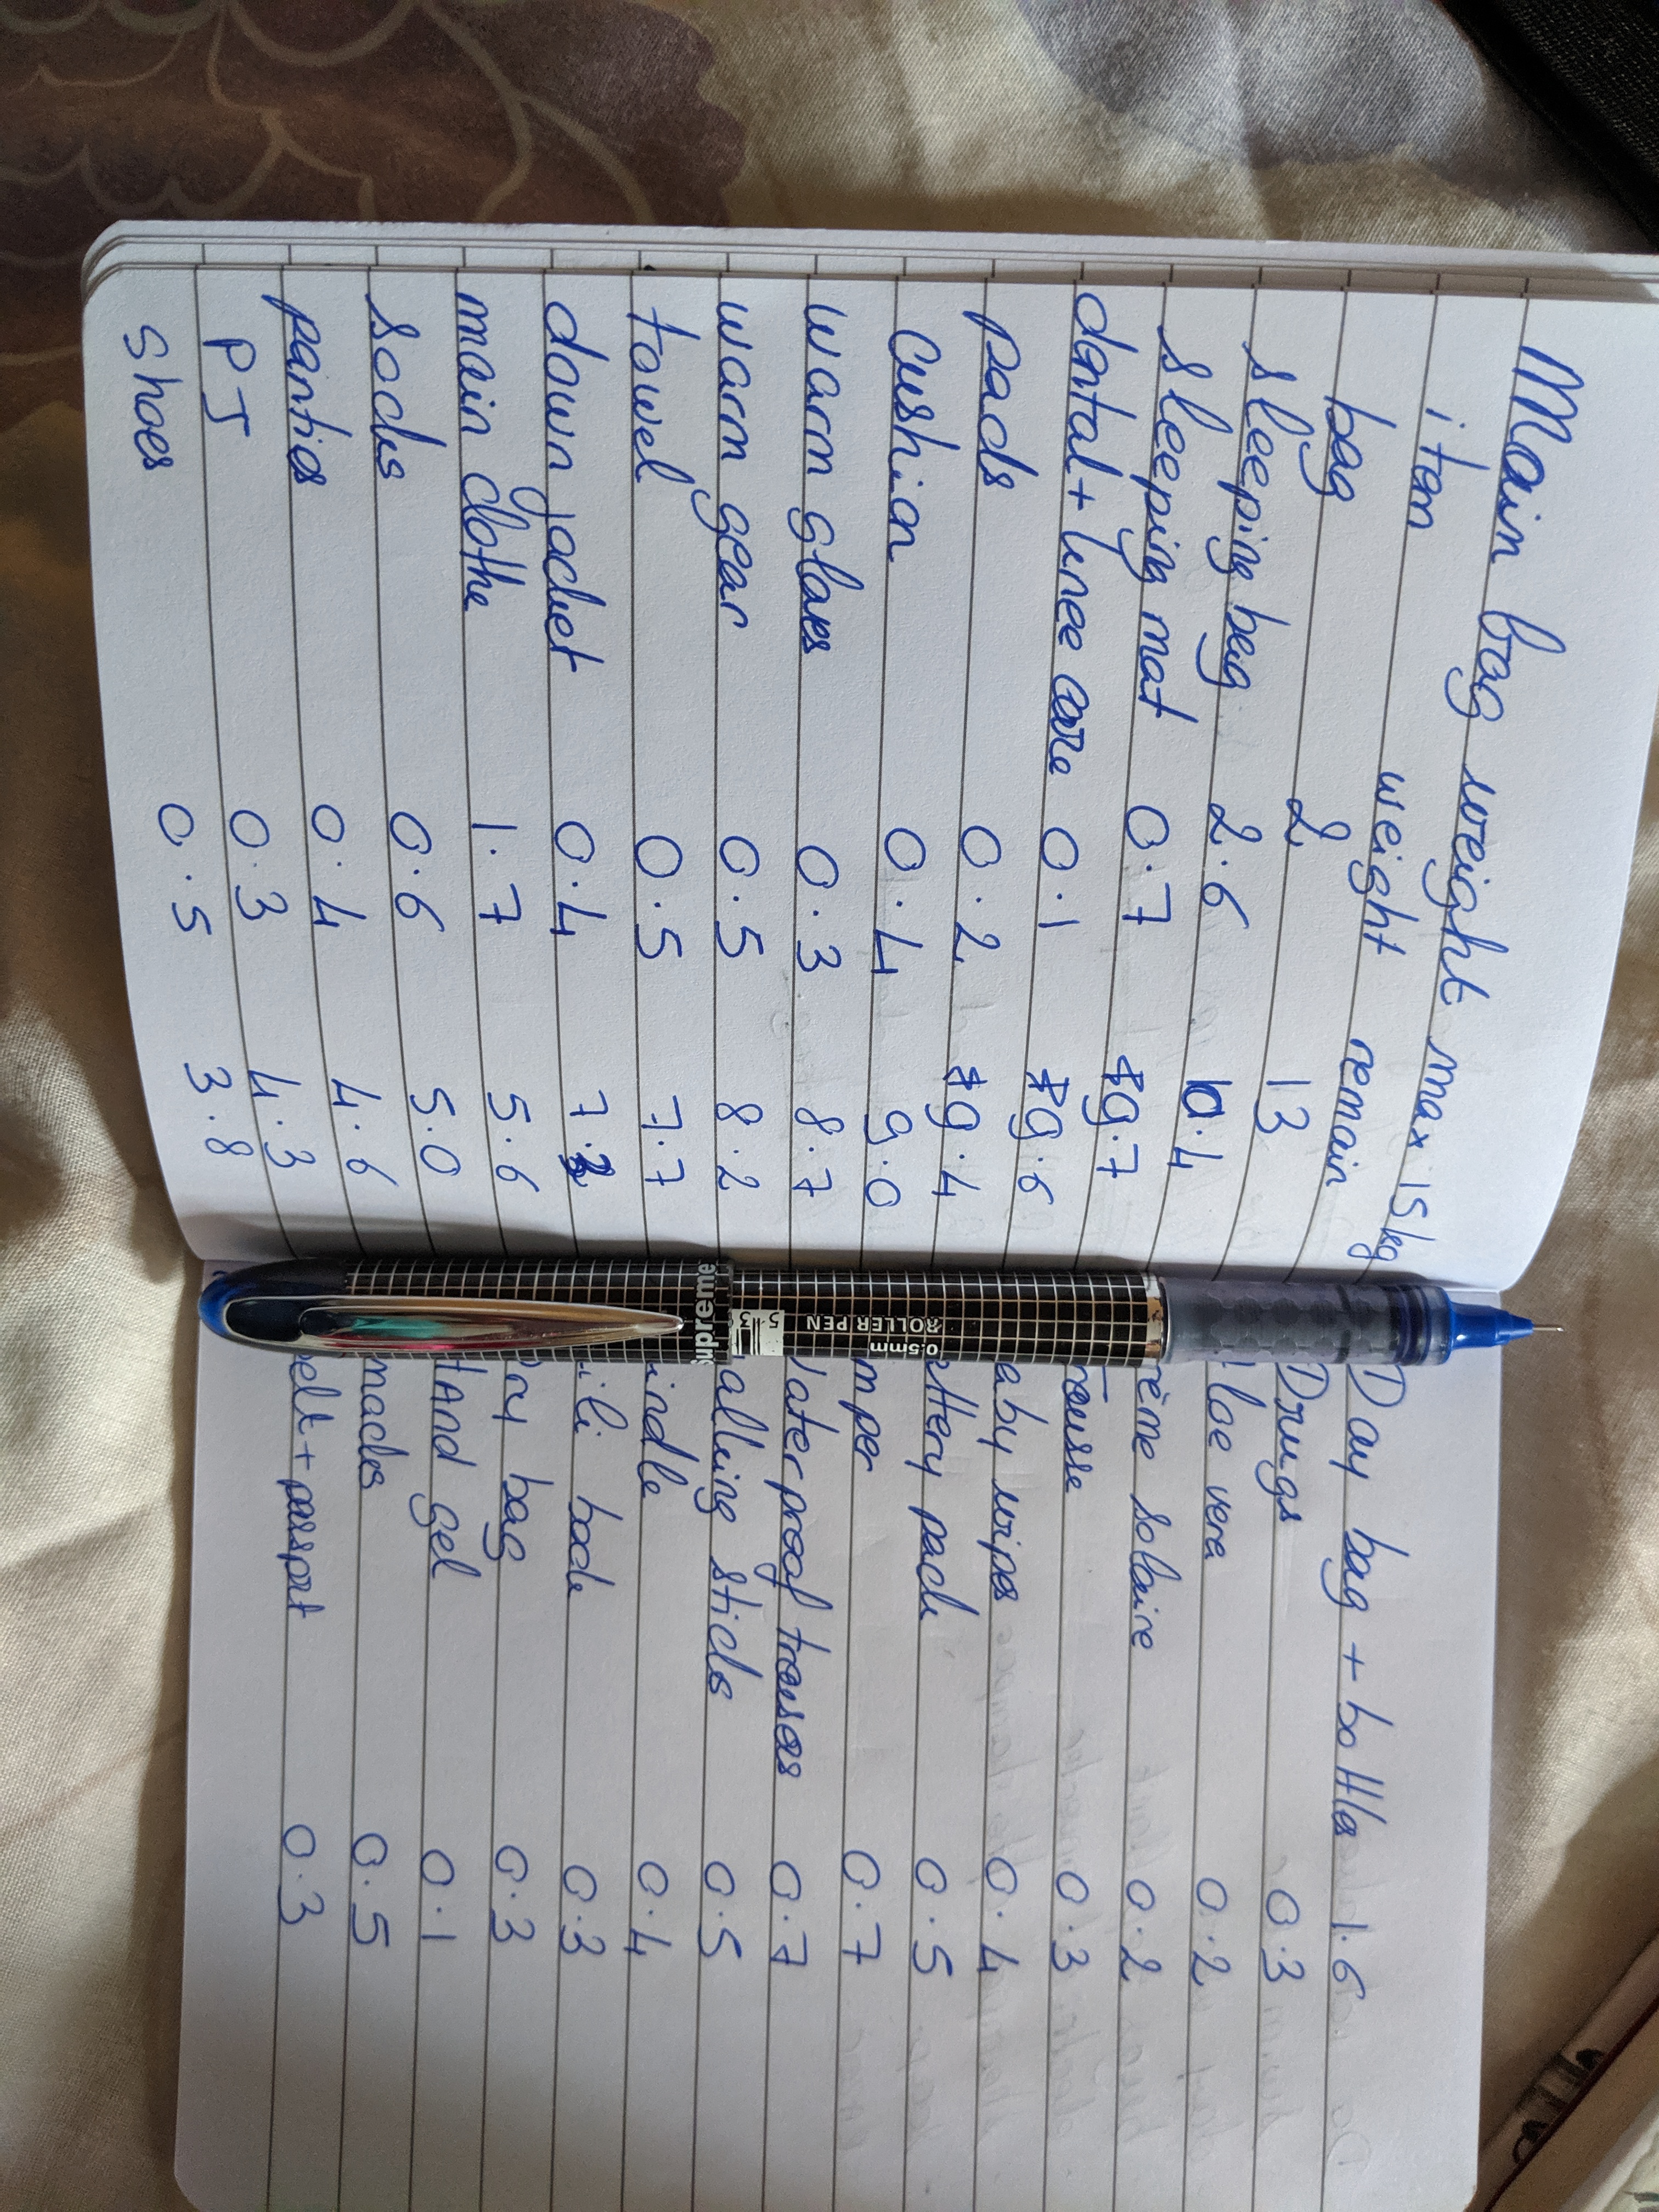 Main bag weight max 15kg
item weight remain
bag 2 13
sleeping bag 2.6 10.4
sleeping mat 0.7 9.7
dental + knee care 0.1 9.6
pads 0.2 9.4
cushion 0.4 9.0
warm gloves 0.3 8.7
warm gear 0.5 8.2
towel 0.5 7.7
down jacket 0.4
main clothe 1.7 5.6
socks 0.6 5.0
panties 0.4 4.6
PJ 0.3 4.3
shoes 0.5 3.8
Supreme
ROLLER PEN
0.5mm
Day bag + bottles 1.6
Drugs 0.3
loe vera 0.2
rème solaire 0.2
rousse 0.3
aby wipes 0.4
attery pack 0.5
mper 0.7
aterproof trousers 0.7
alking sticks 0.5
indle 0.4
ili back 0.3
ry bag 0.3
HAND gel 0.1
nacks 0.5
elt + passport 0.3